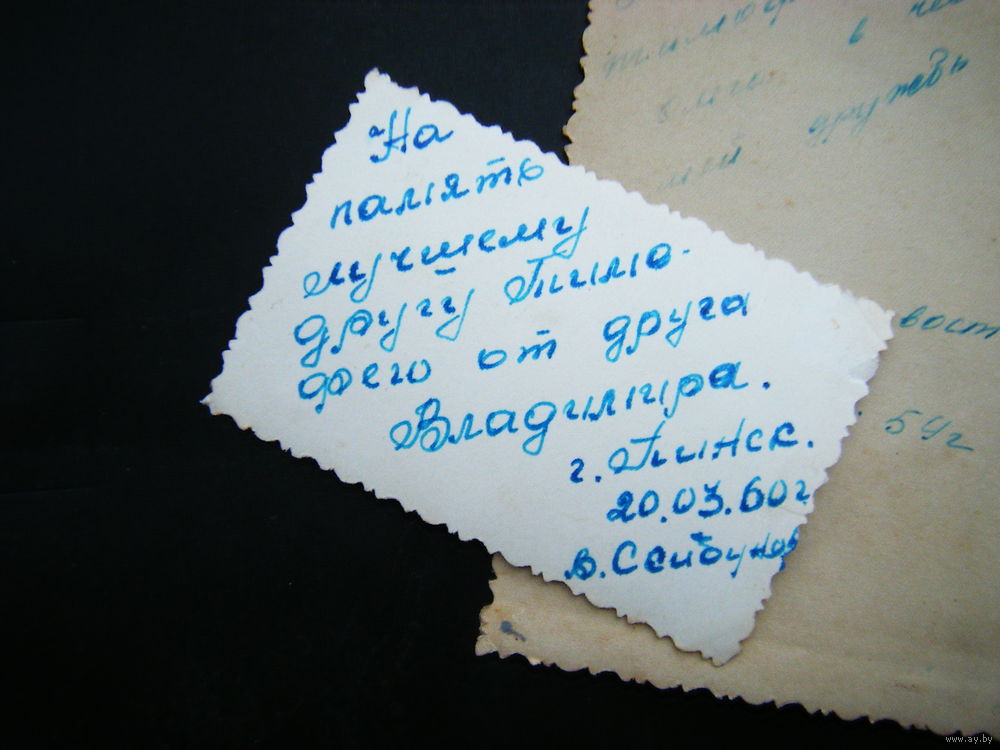 На
память
лучшему
другу Тимо-
фею от друга
Владимира.
г. Пинск.
20.03.60г.
В. Сейбунов
в
дружбы
вост
54г
www.ay.by